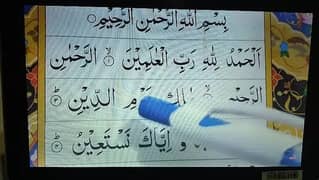 بِسْمِ اللّٰهِ الرَّحْمٰنِ الرَّحِيْمِ
اَلْحَمْدُ لِلّٰهِ رَبِّ الْعٰلَمِيْنَ ۙ الرَّحْمٰنِ
الدِّيْنِ
وَ اِيَّاكَ نَسْتَعِيْنُ